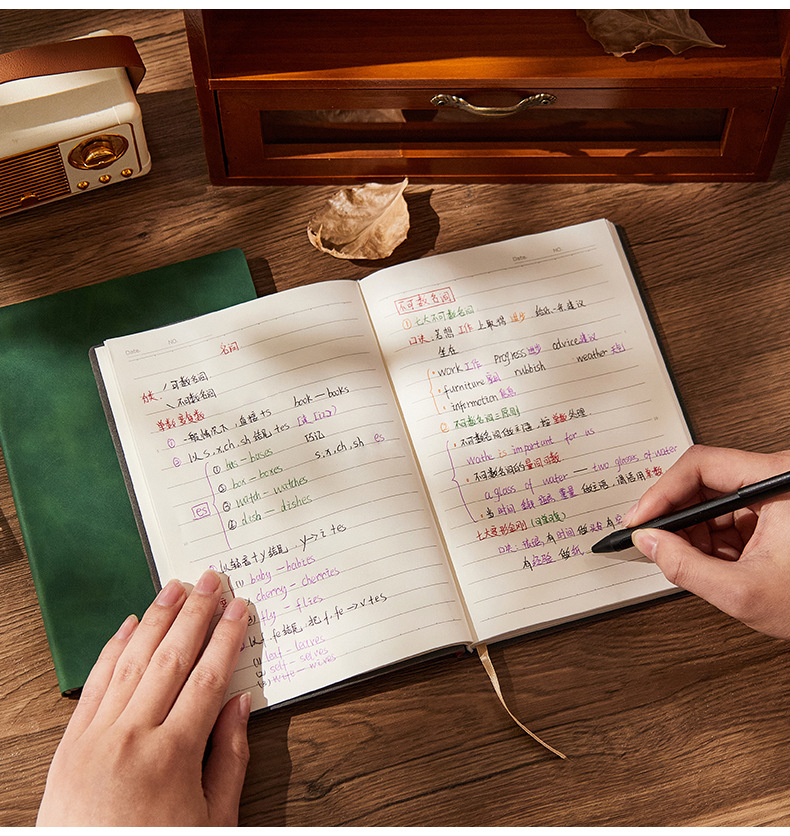 Date. NO.
名词
分类: 可数名词
不可数名词
单数变复数
① 一般情况下,直接+s book — books
② 以 s, x, ch, sh 结尾 +es [iz]
① bus - buses
s, x, ch, sh es
② box - boxes
③ watch - watches
es
④ dish - dishes
③ 以辅音+y结尾, y→i+es
(1) baby - babies
cherry - cherries
fly - flies
以f, fe结尾, 把f, fe→v+es
(1) leaf - leaves
(2) self - selves
(3) wife - wives
Date. NO.
不可数名词
① 七大不可数名词
口诀: 若想工作上取得进步
生在
work 工作 progress 进步 advice 建议
furniture 家具 rubbish weather 天气
information 信息
② 不可数名词三原则
不可数名词做主语,按单数处理
wathe is important for us
不可数名词的量词词数
a glass of water — two glasses of water
当时间 重量 做主语,
七大变形金刚
口诀: 有时间做
有经验 做